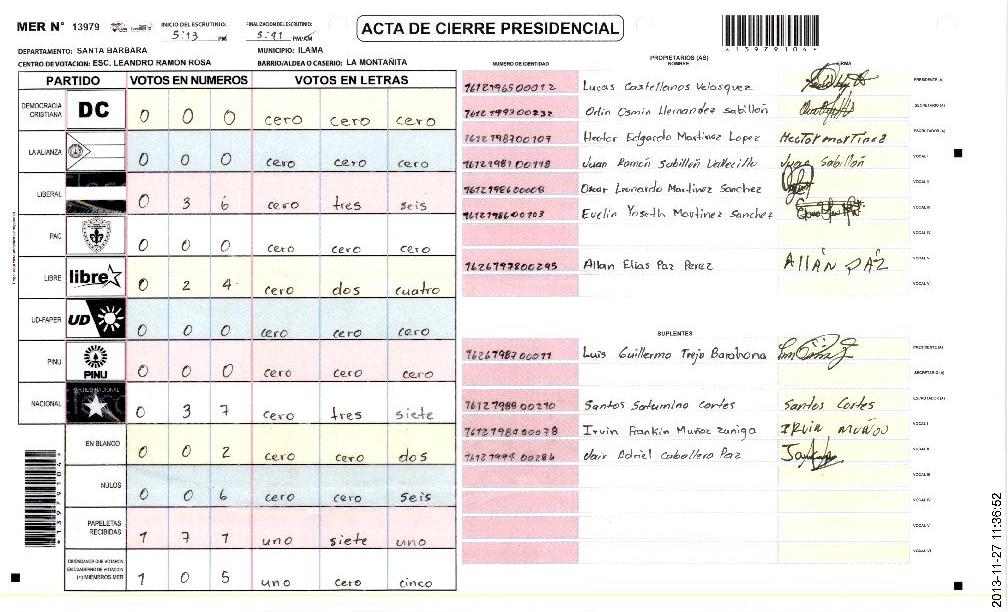 MER N° 13979
INICIO DEL ESCRUTINIO: 5:13 PM
FINALIZACION DEL ESCRUTINIO: 5:41 PM/AM
ACTA DE CIERRE PRESIDENCIAL
*13979104*
DEPARTAMENTO: SANTA BARBARA
MUNICIPIO: ILAMA
CENTRO DE VOTACION: ESC. LEANDRO RAMON ROSA
BARRIO/ALDEA O CASERIO: LA MONTAÑITA
PARTIDO VOTOS EN NUMEROS VOTOS EN LETRAS
DEMOCRACIA CRISTIANA DC 0 0 0 cero cero cero
LA ALIANZA 0 0 0 cero cero cero
LIBERAL 0 3 6 cero tres seis
PAC 0 0 0 cero cero cero
LIBRE libre 0 2 4 cero dos cuatro
UD-FAPER UD 0 0 0 cero cero cero
PINU PINU 0 0 0 cero cero cero
NACIONAL 0 3 7 cero tres siete
EN BLANCO 0 0 2 cero cero dos
NULOS 0 0 6 cero cero seis
PAPELETAS RECIBIDAS 1 7 1 uno siete uno
CIUDADANOS QUE VOTARON EN CUADERNO DE VOTACION (+) MIEMBROS MER 1 0 5 uno cero cinco
*13979104*
PROPIETARIOS (AS)
NUMERO DE IDENTIDAD NOMBRE FIRMA
1612196500012 Lucas Castellanos Velasquez PRESIDENTE (A)
1612199300232 Orlin Osmin Hernandez Sabillon SECRETARIO (A)
1612198700107 Hector Edgardo Martinez Lopez Hector martinez ESCRUTADOR (A)
1612198100118 Juan Ramón Sabillón Vallecillo Juan Sabillón VOCAL I
1612198600008 Oscar Leonardo Martinez Sanchez VOCAL II
1612198600103 Evelin Yaseth Martinez Sanchez VOCAL III
VOCAL IV
1626197800295 Allan Elias Paz Perez AllÁN PÁZ VOCAL V
VOCAL VI
SUPLENTES
1626198700011 Luis Guillermo Trejo Barahona PRESIDENTE (A)
SECRETARIO (A)
1612198900210 Santos Saturnino Cortes Santos Cortes ESCRUTADOR (A)
1612198400078 Irvin Frankin Muñoz Zuniga IRVIN MUÑOO VOCAL I
1612199400286 Jair Adriel Caballero Paz VOCAL II
VOCAL III
VOCAL IV
VOCAL V
VOCAL VI
2013-11-27 11:36:52